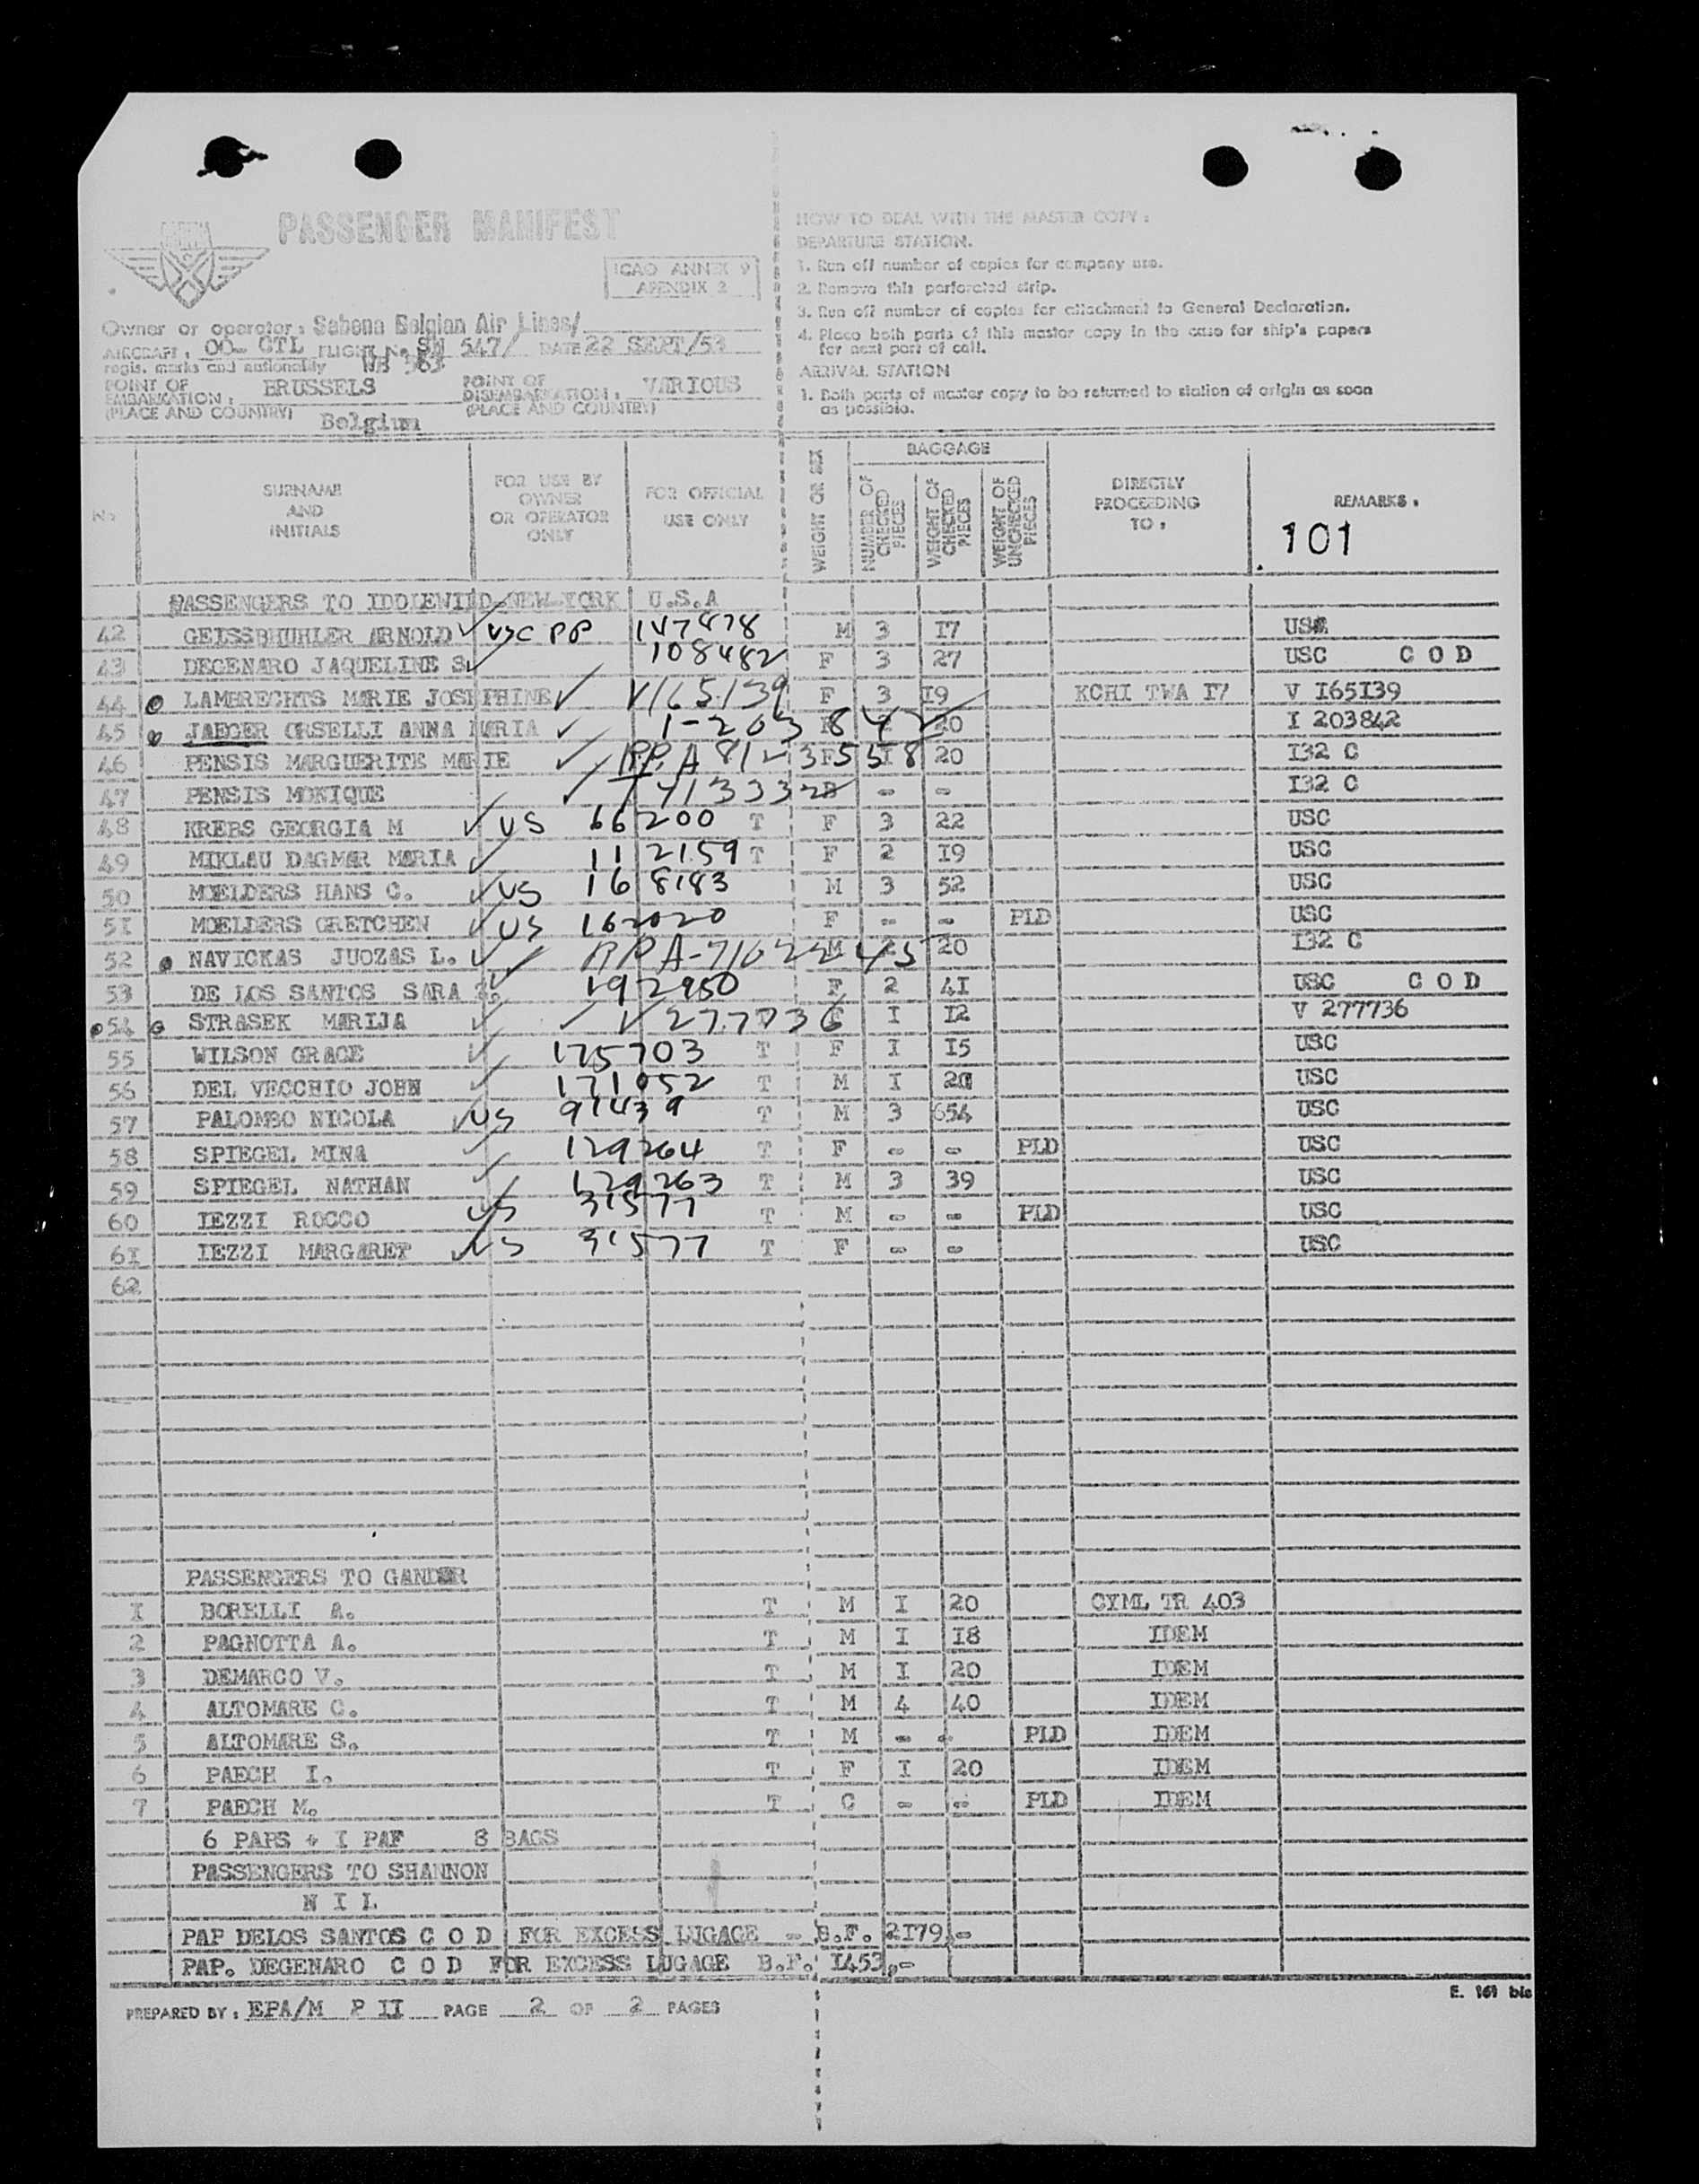 PASSENGER MANIFEST
ICAO ANNEX 9
APENDIX 2
Owner or operator : Sabena Belgian Air Lines/
AIRCRAFT : OO- CTL FLIGHT No SN 547/ DATE 22 SEPT/53
regis. marks and nationality
POINT OF EMBARKATION : BRUSSELS POINT OF DISEMBARKATION : VARIOUS
(PLACE AND COUNTRY) Belgium (PLACE AND COUNTRY)
HOW TO DEAL WITH THE MASTER COPY :
DEPARTURE STATION.
1. Run off number of copies for company use.
2. Remove this perforated strip.
3. Run off number of copies for attachment to General Declaration.
4. Place both parts of this master copy in the case for ship's papers
for next port of call.
ARRIVAL STATION
1. Both parts of master copy to be returned to station of origin as soon
as possible.
No
SURNAME AND INITIALS
FOR USE BY OWNER OR OPERATOR ONLY
FOR OFFICIAL USE ONLY
WEIGHT OR SEX
BAGGAGE
NUMBER OF CHECKED PIECES
WEIGHT OF CHECKED PIECES
WEIGHT OF UNCHECKED PIECES
DIRECTLY PROCEEDING TO :
REMARKS :
101
PASSENGERS TO IDDLEWILD NEW YORK U.S.A
42 GEISSBHUHLER ARNOLD USC PP 147878 M 3 17
43 DEGENARO JAQUELINE S 108482 F 3 27 USC C O D
44 LAMBRECHTS MARIE JOSEPHINE V165139 F 3 I9 KCHI TWA I7 V I65I39
45 JAEGER ORSELLI ANNA MARIA I-203842 20 I 203842
46 PENSIS MARGUERITE MARIE PP. A8123558 F I 20 I32 C
47 PENSIS MONIQUE - - I32 C
48 KREBS GEORGIA M US 66200 T F 3 22 USC
49 MIKLAU DAGMAR MARIA 112159 T F 2 I9 USC
50 MOELDERS HANS C. US 168183 M 3 52 USC
5I MOELDERS GRETCHEN US 162020 F - - PLD USC
52 NAVICKAS JUOZAS L. PP A-7162245 M 20 I32 C
53 DE LOS SANTOS SARA 192950 F 2 4I USC C O D
54 STRASEK MARIJA V277736 I I2 V 277736
55 WILSON GRACE 175703 T F I I5 USC
56 DEL VECCHIO JOHN 171052 T M I 20 USC
57 PALOMBO NICOLA US 91439 T M 3 54 USC
58 SPIEGEL MINA 129264 T F - - PLD USC
59 SPIEGEL NATHAN 129263 T M 3 39 USC
60 IEZZI ROCCO US 31577 T M - - PLD USC
6I IEZZI MARGARET US 31577 T F - - USC
62
PASSENGERS TO GANDER
I BORELLI A. T M I 20 CYML TR 403
2 PAGNOTTA A. T M I I8 IDEM
3 DEMARCO V. T M I 20 IDEM
4 ALTOMARE C. T M 4 40 IDEM
5 ALTOMARE S. T M - - PLD IDEM
6 PAECH I. T F I 20 IDEM
7 PAECH M. T C - - PLD IDEM
6 PAPS + I PAF 8 BAGS
PASSENGERS TO SHANNON
N I L
PAP DELOS SANTOS C O D FOR EXCESS LUGAGE - B.F. 2I79,-
PAP. DEGENARO C O D FOR EXCESS LUGAGE B.F. I453,-
E. 161 bis
PREPARED BY : EPA/M P II PAGE 2 OF 2 PAGES